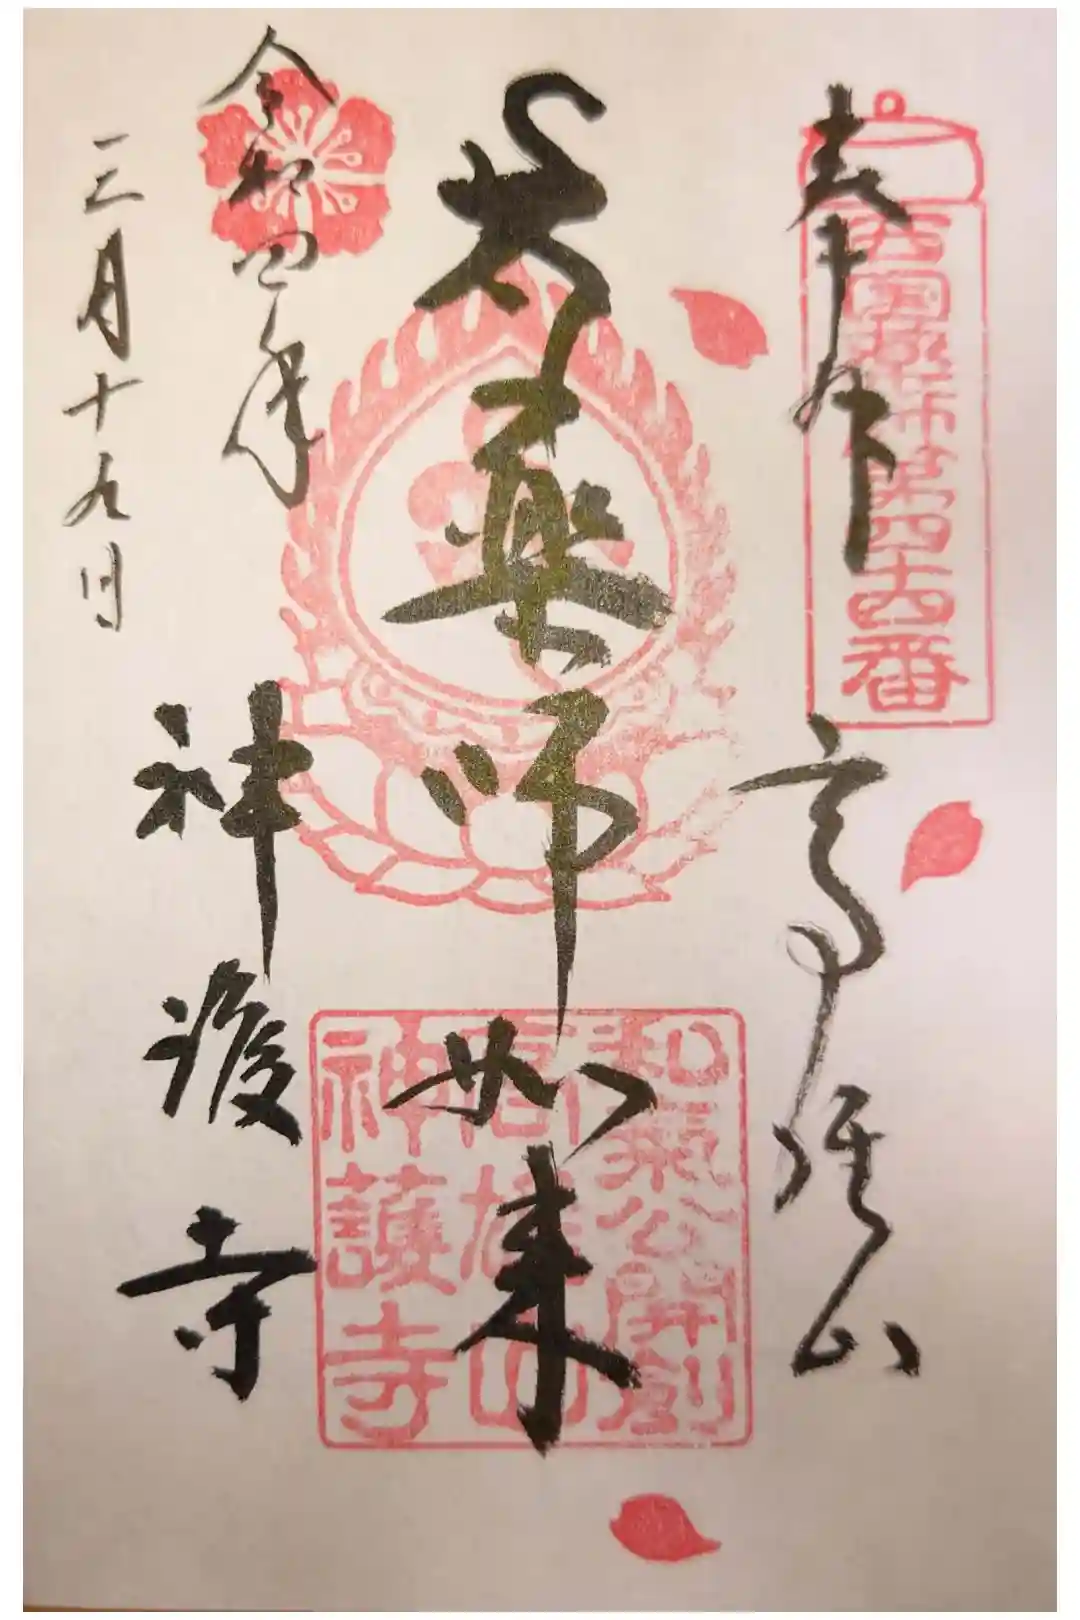 奉拝
高雄山
西国薬師第四十四番
薬師如来
和気公開創
高雄山
神護寺
令和四年
三月十九日
神護寺